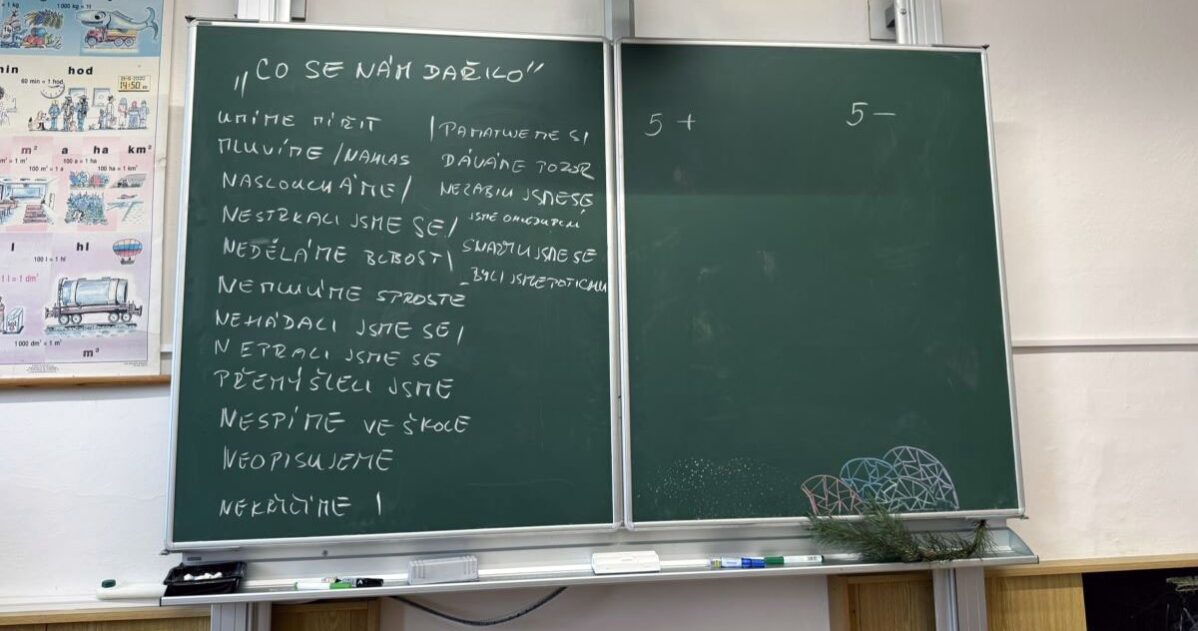 = 1 kg
1 000 kg = 1 t
min
hod
60 min = 1 hod
14:50
m² a ha km²
100 a = 1 ha
100 m² = 1 a
100 ha = 1 km²
l
hl
100 l = 1 hl
1 l = 1 dm³
1 000 dm³ = 1 m³
m³
„CO SE NÁM DAŘILO"
UMÍME MÍŘIT
MLUVÍME / NAHLAS
NASLOUCHÁME /
NESTRKALI JSME SE /
NEDĚLÁME BLBOSTI
NEMLUVÍME SPROSTĚ
NEHÁDALI JSME SE /
NEPRALI JSME SE
PŘEMÝŠLELI JSME
NESPÍME VE ŠKOLE
NEOPISUJEME
NEKŘIČÍME |
| PAMATUJEME SI
DÁVÁME POZOR
NEZABILI JSME SE
JSME OHLEDUPLNÍ
SNAŽILI JSME SE
- BYLI JSME POTICHU
5 +
5 –